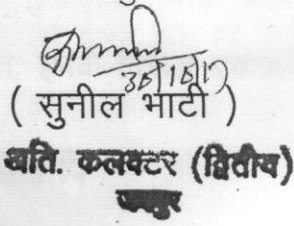 30/10/17
( सुनील भाटी )
अति. कलक्टर (द्वितीय)
जयपुर